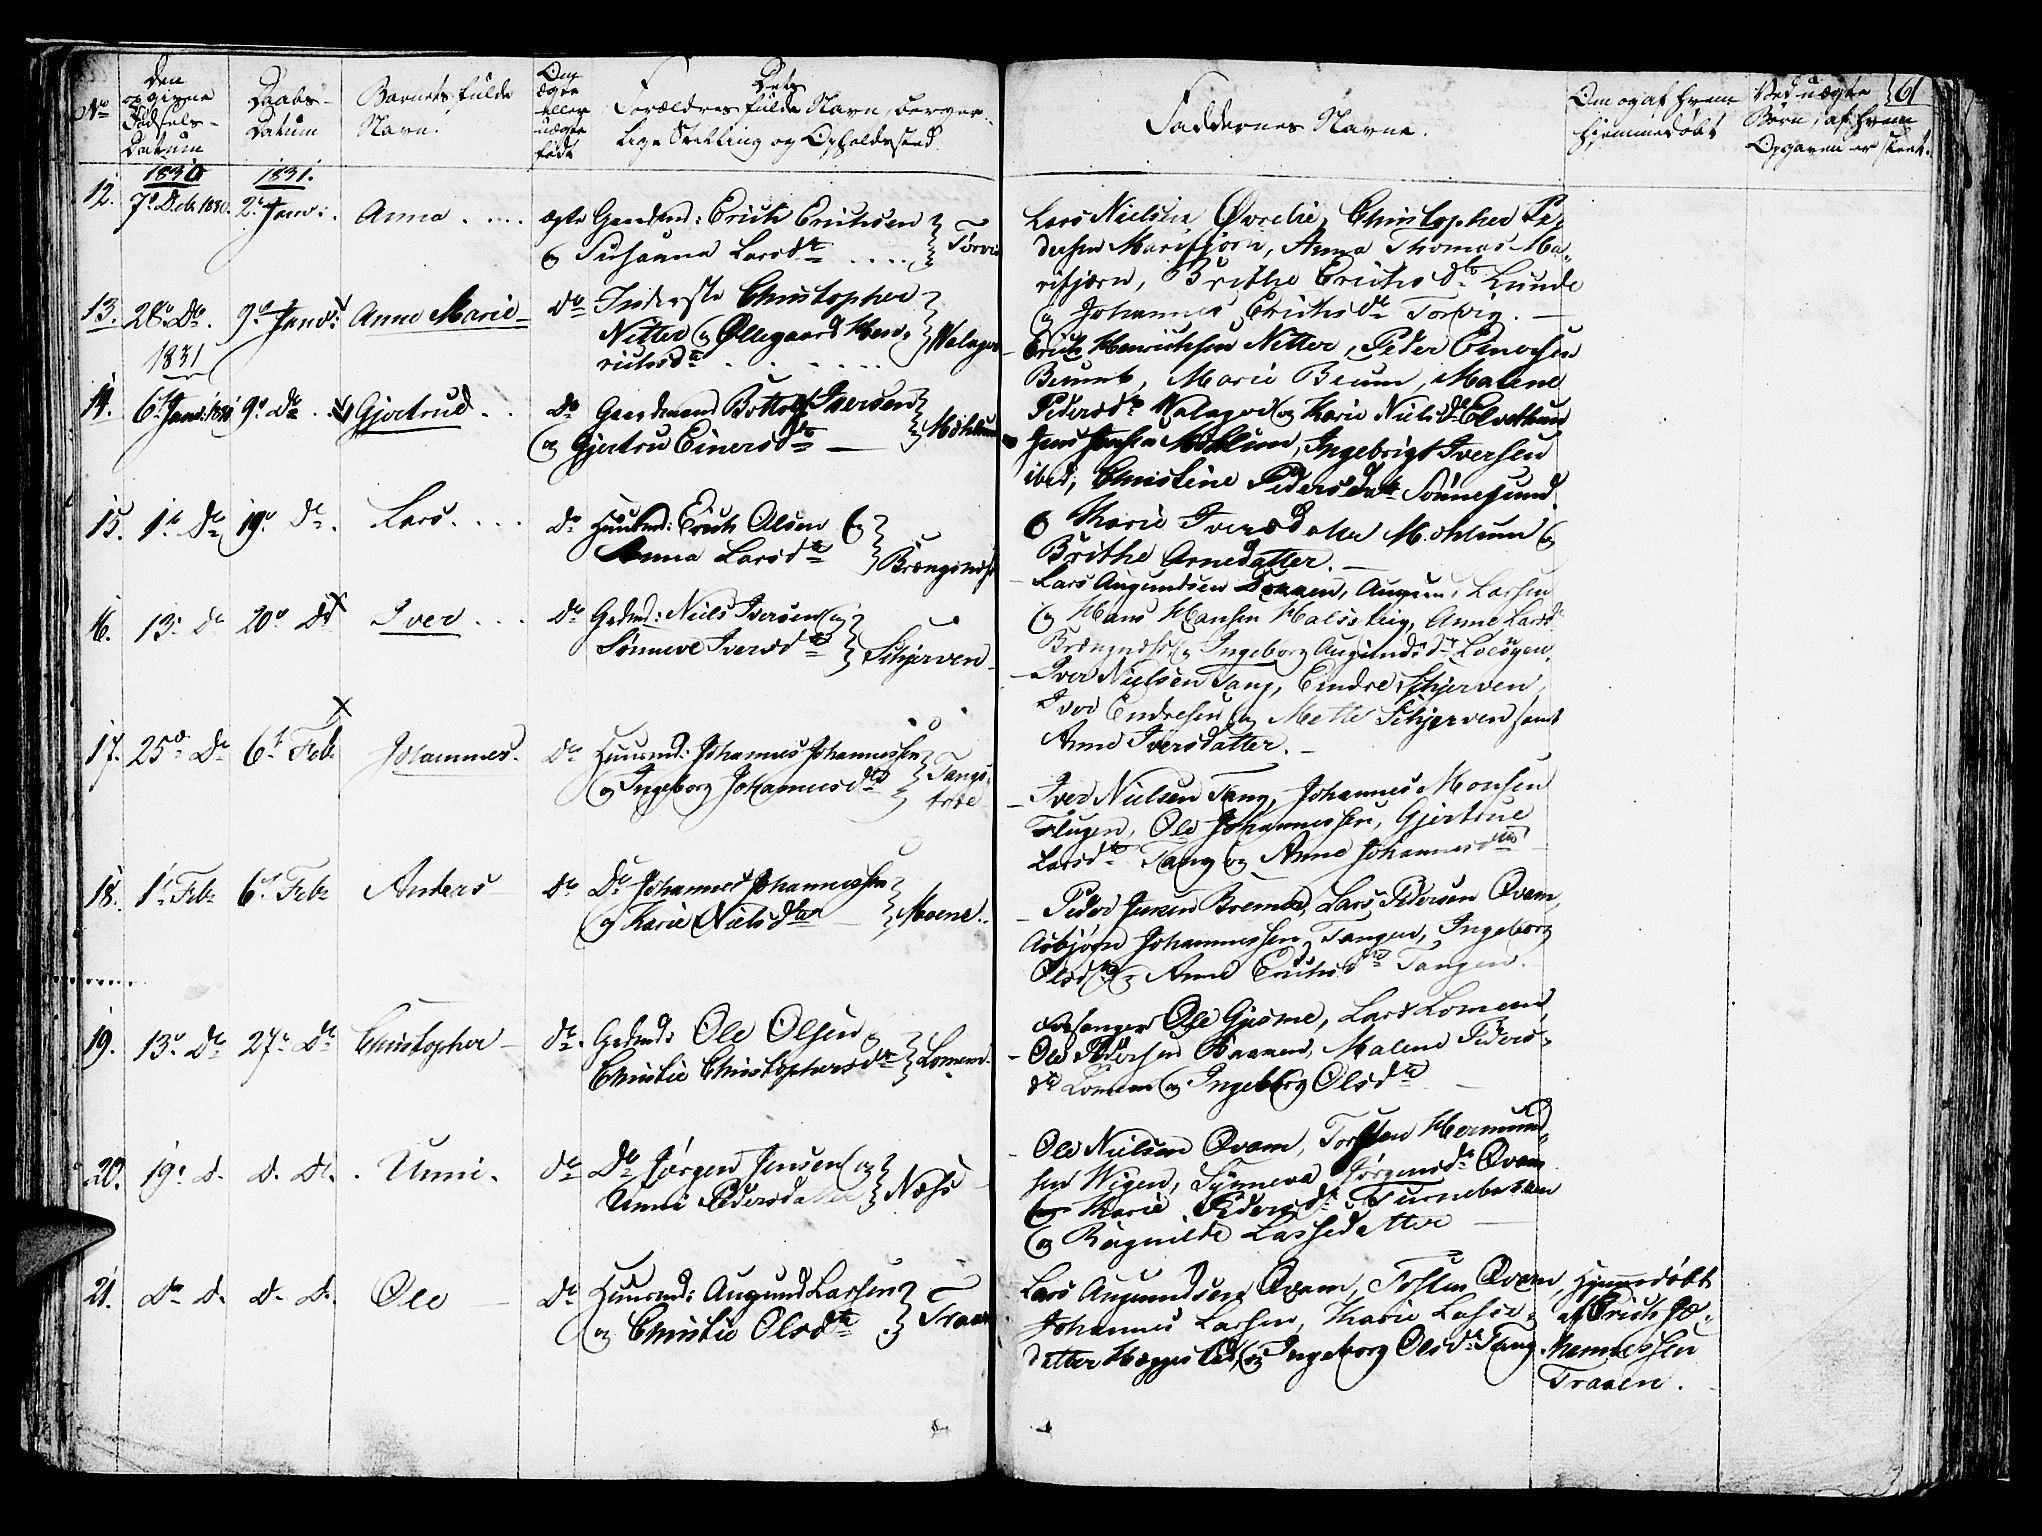 No
Den
opgivne
Fødsels-
Datum
Daabs-
Datum
Barnets fulde
Navn.
Om
ægte
eller
uægte
født
Dets
Forældres fulde Navn, borger-
lige Stilling og Opholdssted
Faddernes Navne.
Om og af hvem
hjemmedøbt
Ved uægte
Børn, af hvem
Opgaven er skeet.
61
1830
1831.
12. 7de Dcb. 1830. 2den Janv: Anna . . . . ægte Gaardmd: Erich Erichsen
og Susanna Larsdtr . . . . Torvi
Lars Nielsen Øvrelie, Christopher Pe-
dersen Marifjørn, Anna Thomas Ma-
rifjørn, Brithe Erichsdtr Lunde
og Johannes Erichs Torvig. —
13. 28de Do. 9de Janv: Anne Marie — do Inderste Christopher
Nitter og Øllegaard Hen-
richsdtr . . . . . Walager
Erich Henrichsen Nitter, Peder Einersen
Bruum, Marie Bruum, Malene
Pedersdtr Walager og Karie Nielsdtr
1831
14. 6te Janv: 1831 9de Do Gjertrud . . Do Gaardmand Botolf Iversen
og Gjertru Einersdtr — Mohlum
Jens Jensen Mohlum, Ingebrigt Iversen
ibid, Christine Pedersdatter Sønnesund
Karie Iversdatter Mohlum og
Brithe Arnedatter. —
15. 1ste Do 19de Do. Lars. . . . Do Huusmd: Erich Olsen og
Anna Larsdtr
Lars Augundsen Augun. Larsen
og Hans Hansen Anne Larsd
og Ingeborg Augundsdtr
16. 13de Do 20de Do Iver . . . Do Grdmd: Niels Iversen og
Sønneve Iversdtr Schjerven
Iver Nielsen Tang, Eindre Schjerven,
Iver Endresen og Mette Schjerven samt
Anne Iversdatter. —
17. 25de Do 6te Febr Johannes. Do Huusmd: Johannes Johannessen
og Ingeborg Johannesdtr Tangs-
Iver Nielsen Tang, Johannes Monsen
Flugen, Ole Johannessen, Gjertrue
Larsdtr Tang og Anne Johannesdtr
18. 1ste Febr 6te Febr Anders Do Do Johannes Johannessen
og Karie Nielsdtr — Moene.
Peder Jensen Bremer, Lars Pedersen Qvam,
Asbjørn Johannessen Tangen, Ingeborg
Olsdtr og Anne Erichsdtr Tangen.
19. 13de Do 27de Do Christopher — Do. Grdmd: Ole Olsen og
Christie Christophersdtr Lomen
Forsanger Ole Gjesme, Lars Lomen,
Ole Pedersen Malene Peders-
dtr Lomen og Ingeborg Olsdtr —
20. 19de D. D. D. Unni. Do Do Jørgen Jensen og
Unni Pedersdatter Næss
Ole Nielsen Qvam, Torsten Hermund-
sen Wigen, Synneva Jørgensdtr Qvam
Karie Pedersdtr
og Ragnilde Lassedatter —
21. Do D. D. D. Ole — Do Huusmd: Augund Larsen
og Christie Olsdtr Traaen
Lars Augundsen Qvam, Tosten Qvam,
Johannes Larsen, Karie Lasse-
datter Heggestad og Ingeborg Olsdtr Tang.
Hjemmedøbt
af Erich Jo-
hannessen
Traaen.